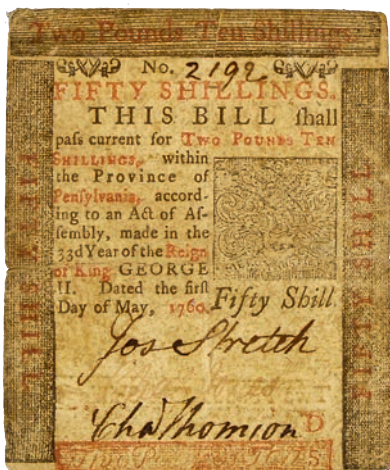 Two Pounds Ten Shillings.
No. 2192
FIFTY SHILLINGS.
THIS BILL ſhall
paſs current for Two Pounds Ten
Shillings, within
the Province of
Penſylvania, accord-
ing to an Act of Aſ-
ſembly, made in the
33d Year of the Reign
of King GEORGE
II. Dated the firſt
Day of May, 1760.
Fifty Shill.
Jos Stretch
Cha Thomson
D
FIFTY SHILL